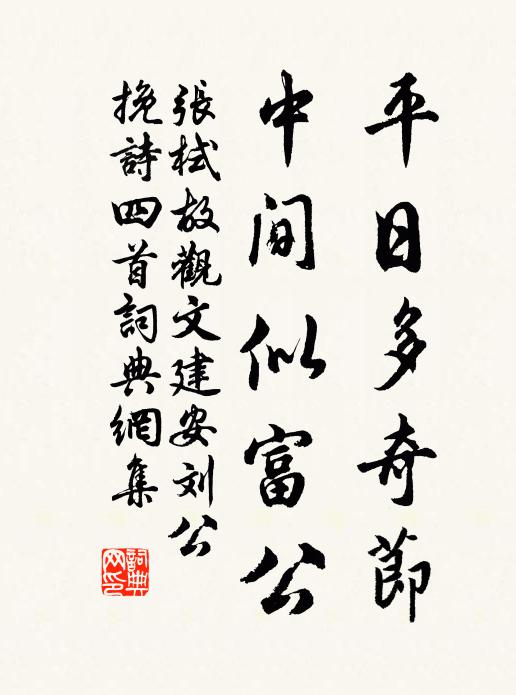 平日多奇節
中間似富公
張栻故觀文建安刘公
挽詩四首詞典網集
詞典
网印